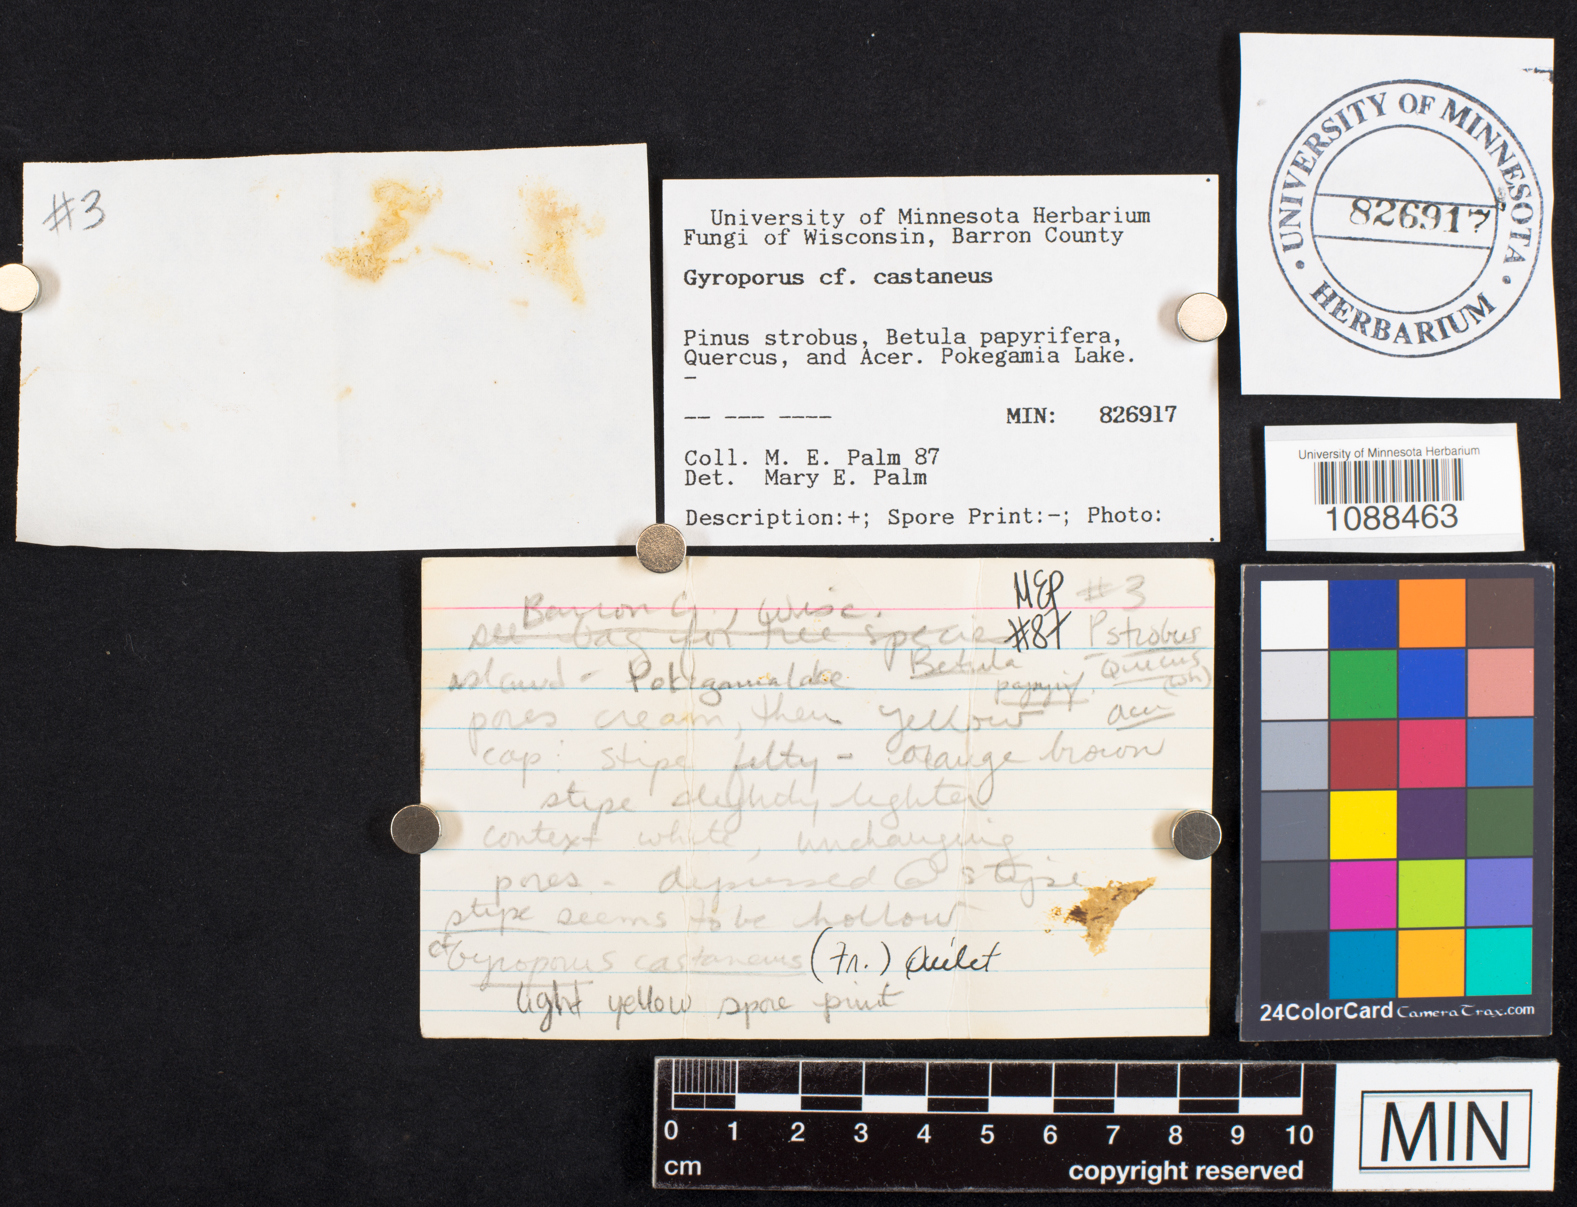 #3
University of Minnesota Herbarium
Fungi of Wisconsin, Barron County
Gyroporus cf. castaneus
Pinus strobus, Betula papyrifera,
Quercus, and Acer. Pokegamia Lake.
–
-- --- ----
MIN: 826917
Coll. M. E. Palm 87
Det. Mary E. Palm
Description:+; Spore Print:-; Photo:
UNIVERSITY OF MINNESOTA
826917
HERBARIUM
University of Minnesota Herbarium
1088463
MEP #3
#87
Barron Co., Wisc.
see bag for tree species
P strobus
island - Pokegama lake
Betula
papyrif.
Quercus
(wh)
acer
pores cream, then yellow
cap: stipe felty - orange brown
stipe slightly lighter
context white, unchanging
pores - depressed @ stipe
stipe seems to be hollow
cf Gyroporus castaneus (Fr.) Quélet
light yellow spore print
24ColorCard CameraTrax.com
0 1 2 3 4 5 6 7 8 9 10
cm
copyright reserved
MIN